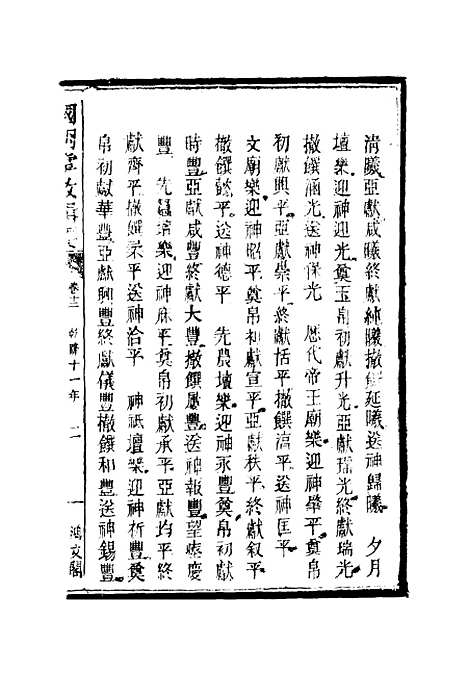 清曦亞獻咸曦終獻純曦撤饌延曦送神歸曦　夕月
壇樂迎神迎光奠玉帛初獻升光亞獻瑤光終獻瑞光
撤饌涵光送神保光　歷代帝王廟樂迎神肇平奠帛
初獻興平亞獻崇平終獻恬平撤饌淳平送神匡平
文廟樂迎神昭平奠帛初獻宣平亞獻秩平終獻叙平
撤饌懿平送神德平　先農壇樂迎神永豐奠帛初獻
時豐亞獻咸豐終獻大豐撤饌屢豐送神報豐望瘞慶
豐　先蠶壇樂迎神庥平奠帛初獻承平亞獻均平終
獻齊平撤饌柔平送神洽平　神祇壇樂迎神祈豐奠
帛初獻華豐亞獻興豐終獻儀豐撤饌和豐送神錫豐
國朝 政 卷十二 乾隆十一年 二 一 鴻文閣